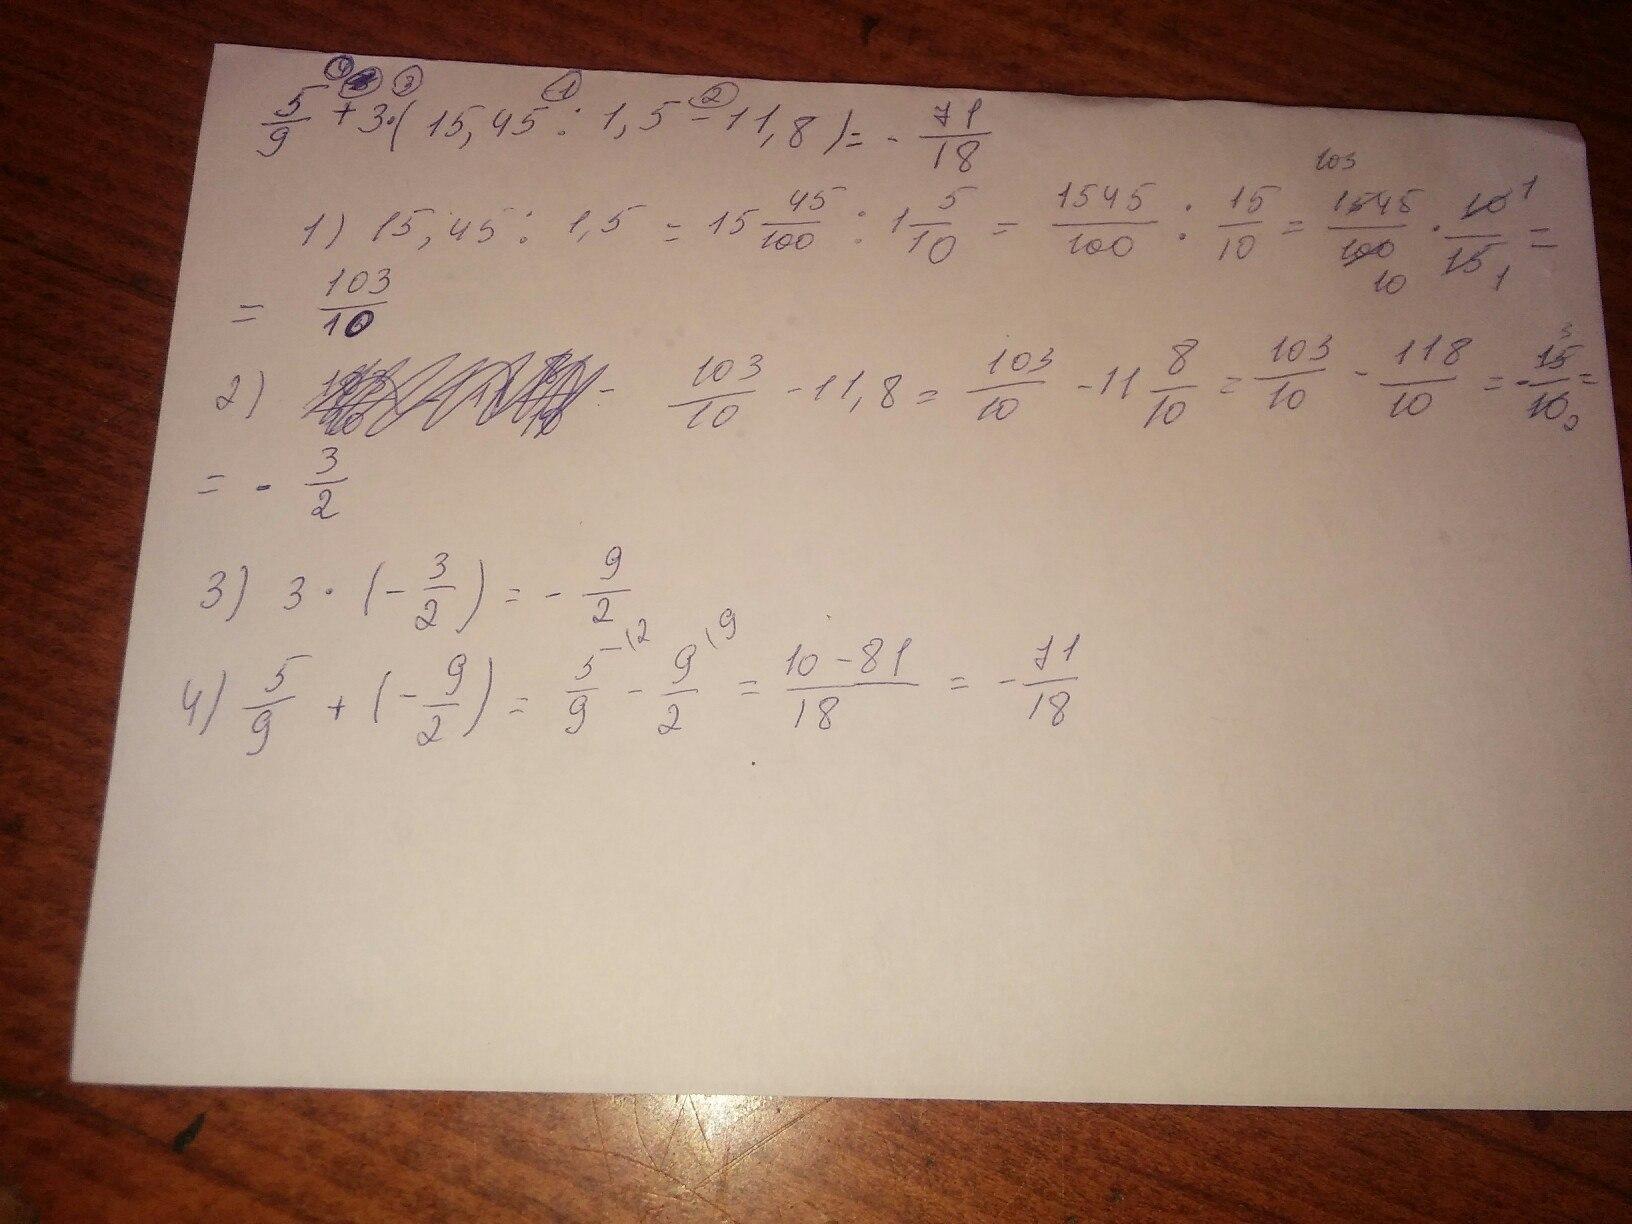 ④ ③ ① ②
5/9 + 3·(15,45 : 1,5 - 11,8) = - 71/18
1) 15,45 : 1,5 = 15 45/100 : 1 5/10 = 1545/100 : 15/10 = 1545/100 · 10/15 = 103 1 10 1
= 103/10
2) 103/10 - 11,8 = 103/10 - 11 8/10 = 103/10 - 118/10 = - 15/10 = 3 2
= - 3/2
3) 3 · (- 3/2) = - 9/2
4) 5/9 + (- 9/2) = 5/9 \2 - 9/2 \9 = 10-81/18 = - 71/18